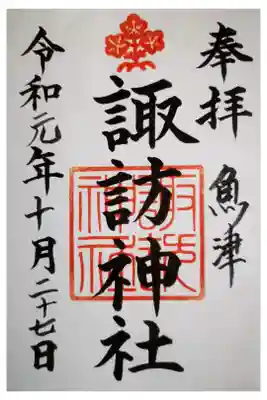 奉拝 魚津
諏訪神社
令和元年十月二十七日